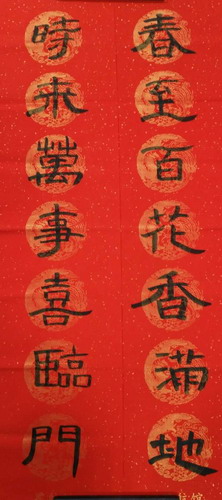 春至百花香滿地
時来萬事喜臨門